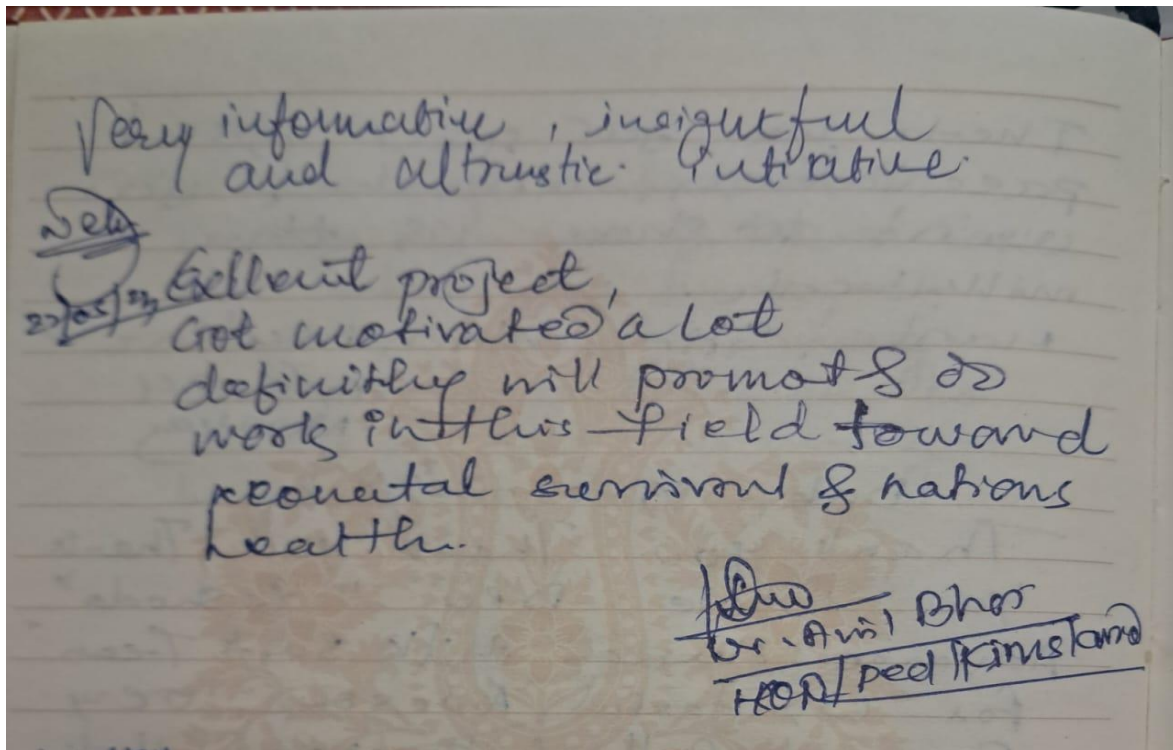 Very informative, insightful
and altrustic. Intiative.
Exllent project,
Got motivated a lot
definitley will promot & do
work in this field toward
neonatal survival & nations
health.
Dr. Anil Bhor
HOD/ped/Kims/